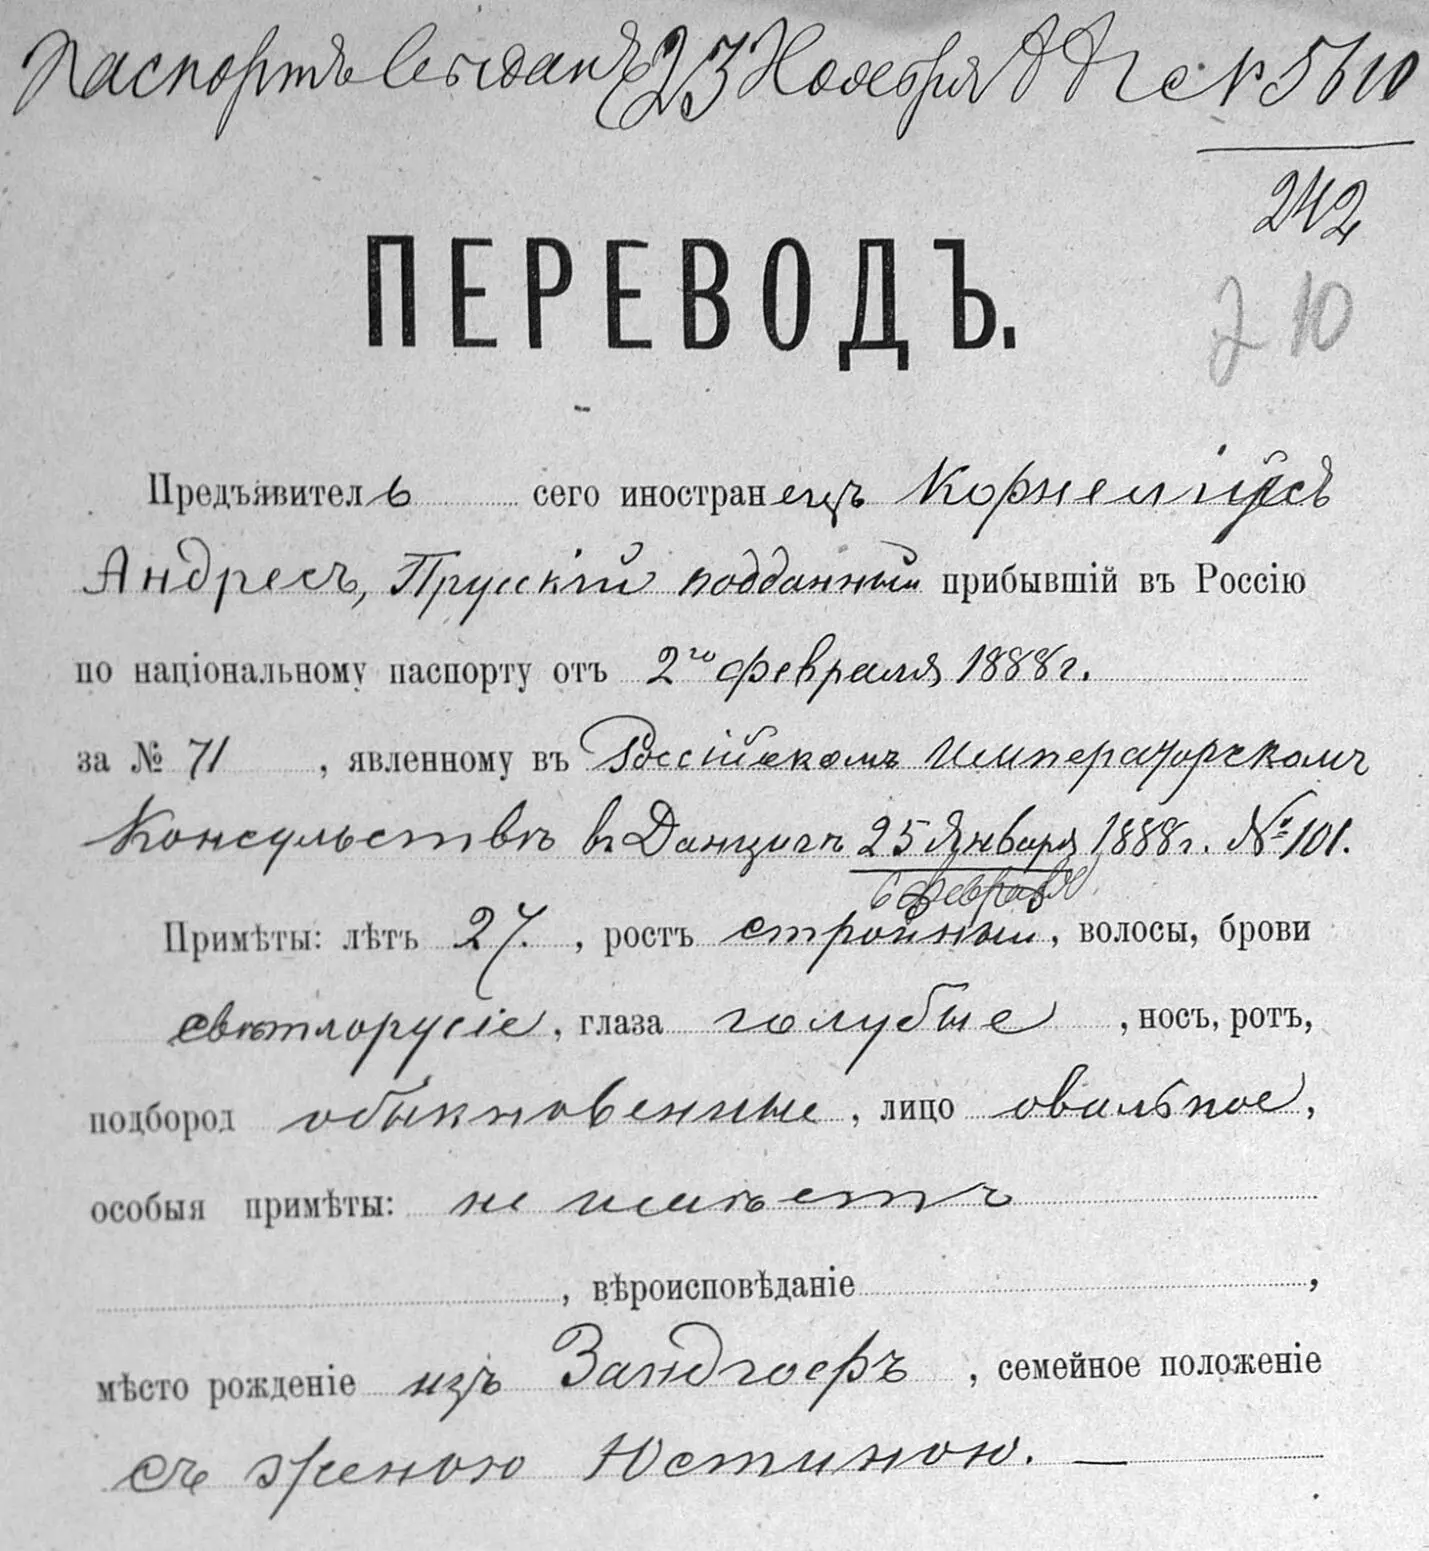 Паспортъ выданъ 23 Ноября № 5610
242
210
ПЕРЕВОДЪ.
Предъявитель сего иностранецъ Корнеліусъ
Андресъ, Прусскій подданный прибывшій въ Россію
по національному паспорту отъ 2го февраля 1888 г.
за № 71, явленному въ Россійскомъ Императорскомъ
Консульствѣ въ Данцигѣ 25 Января 1888 г. № 101.
6 февраля
Примѣты: лѣтъ 27., ростъ стройный, волосы, брови
свѣтлорусіе, глаза голубые, носъ, ротъ,
подбород обыкновенные, лицо овальное,
особыя примѣты: не имѣетъ
, вѣроисповѣданіе ,
мѣсто рожденіе изъ Зандгофъ, семейное положеніе
съ женою Юстиною. —